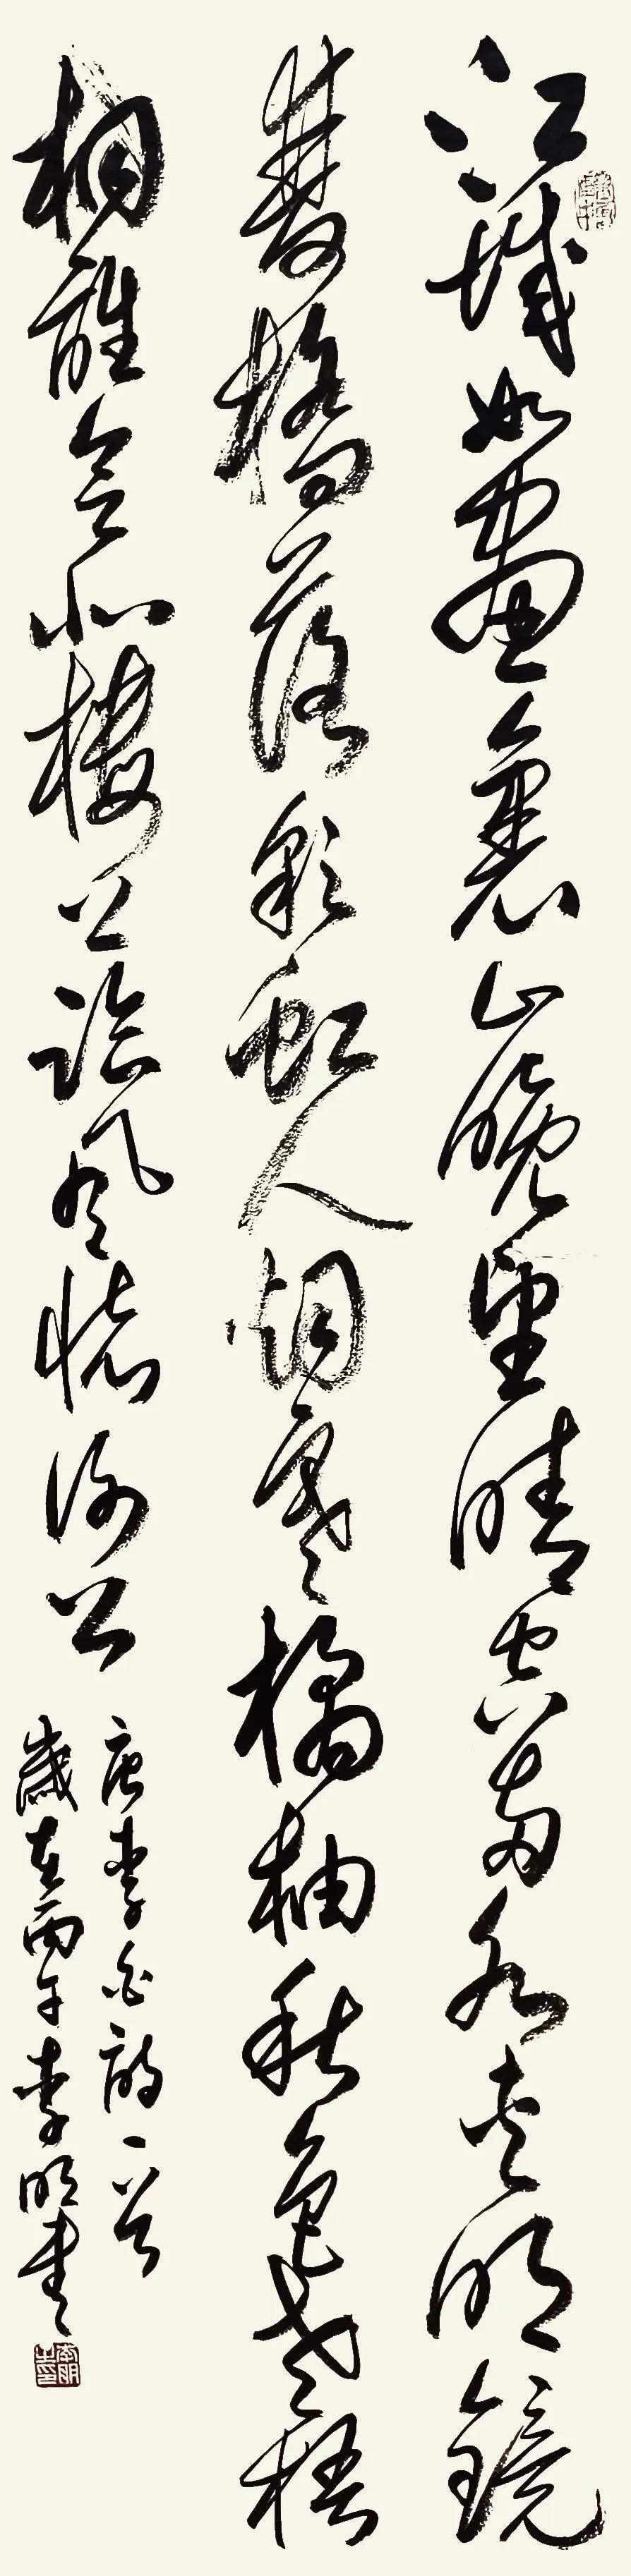 江城如畫裏山晚望晴空兩水夾明鏡
雙橋落彩虹人烟寒橘柚秋色老梧
桐誰念北樓上臨風懷謝公
唐李白詩一首
歲在丙午李明書